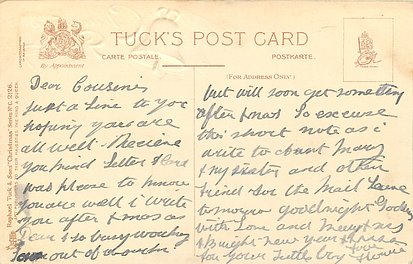 TUCK'S POST CARD
By Appointment
CARTE POSTALE.
POSTKARTE.
(FOR ADDRESS ONLY.)
Raphael Tuck & Sons' "Christmas" Series No. C. 2126.
Dear Cousins
Just a Line to you
hoping you are
all well. Recieve
you kind Letter & Card
was please to know
you are well i write
you after Xmas as
I so busy working
out of
but will soon get something
after Xmas So excuse
this short note as i
write to Aunt Mary
& my sister and other
friend for the Mail Leave
tomorrow goodnight
with Love and Merry Xmas
& Bright New year
from your Little